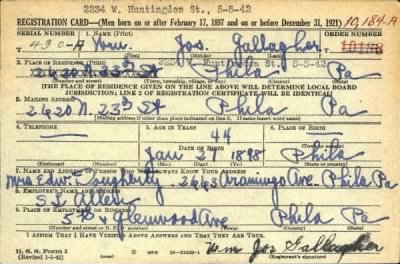 2234 W. Huntingdon St., 5-5-42
REGISTRATION CARD—(Men born on or after February 17, 1897 and on or before December 31, 1921)
10,184-A
SERIAL NUMBER 1. NAME (Print) ORDER NUMBER
430-A Wm. Jos. Gallagher
2. PLACE OF RESIDENCE (Print)
2234 W. Huntingdon St. 5-5-42
2620 N. 23rd St Phila Pa
(Number and street) (Town, township, village, or city) (County) (State)
[THE PLACE OF RESIDENCE GIVEN ON THE LINE ABOVE WILL DETERMINE LOCAL BOARD
JURISDICTION; LINE 2 OF REGISTRATION CERTIFICATE WILL BE IDENTICAL]
3. MAILING ADDRESS
2620 N. 23rd St Phila Pa
[Mailing address if other than place indicated on line 2. If same insert word same]
4. TELEPHONE 5. AGE IN YEARS 6. PLACE OF BIRTH
44
DATE OF BIRTH
Jan 1898 Phila
(Exchange) (Number) (Mo.) (Day) (Yr.) (State or country)
7. NAME AND ADDRESS OF PERSON WHO WILL ALWAYS KNOW YOUR ADDRESS
Mrs Edw. Dougherty 2663 Aramingo Ave Phila Pa
8. EMPLOYER'S NAME AND ADDRESS
S. L. Allen
9. PLACE OF EMPLOYMENT OR BUSINESS
5th & Glenwood Ave Phila Pa
(Number and street or R. F. D. number) (Town) (County) (State)
I AFFIRM THAT I HAVE VERIFIED ABOVE ANSWERS AND THAT THEY ARE TRUE.
D. S. S. Form 1
(Revised 1-1-42) Wm Jos Gallagher